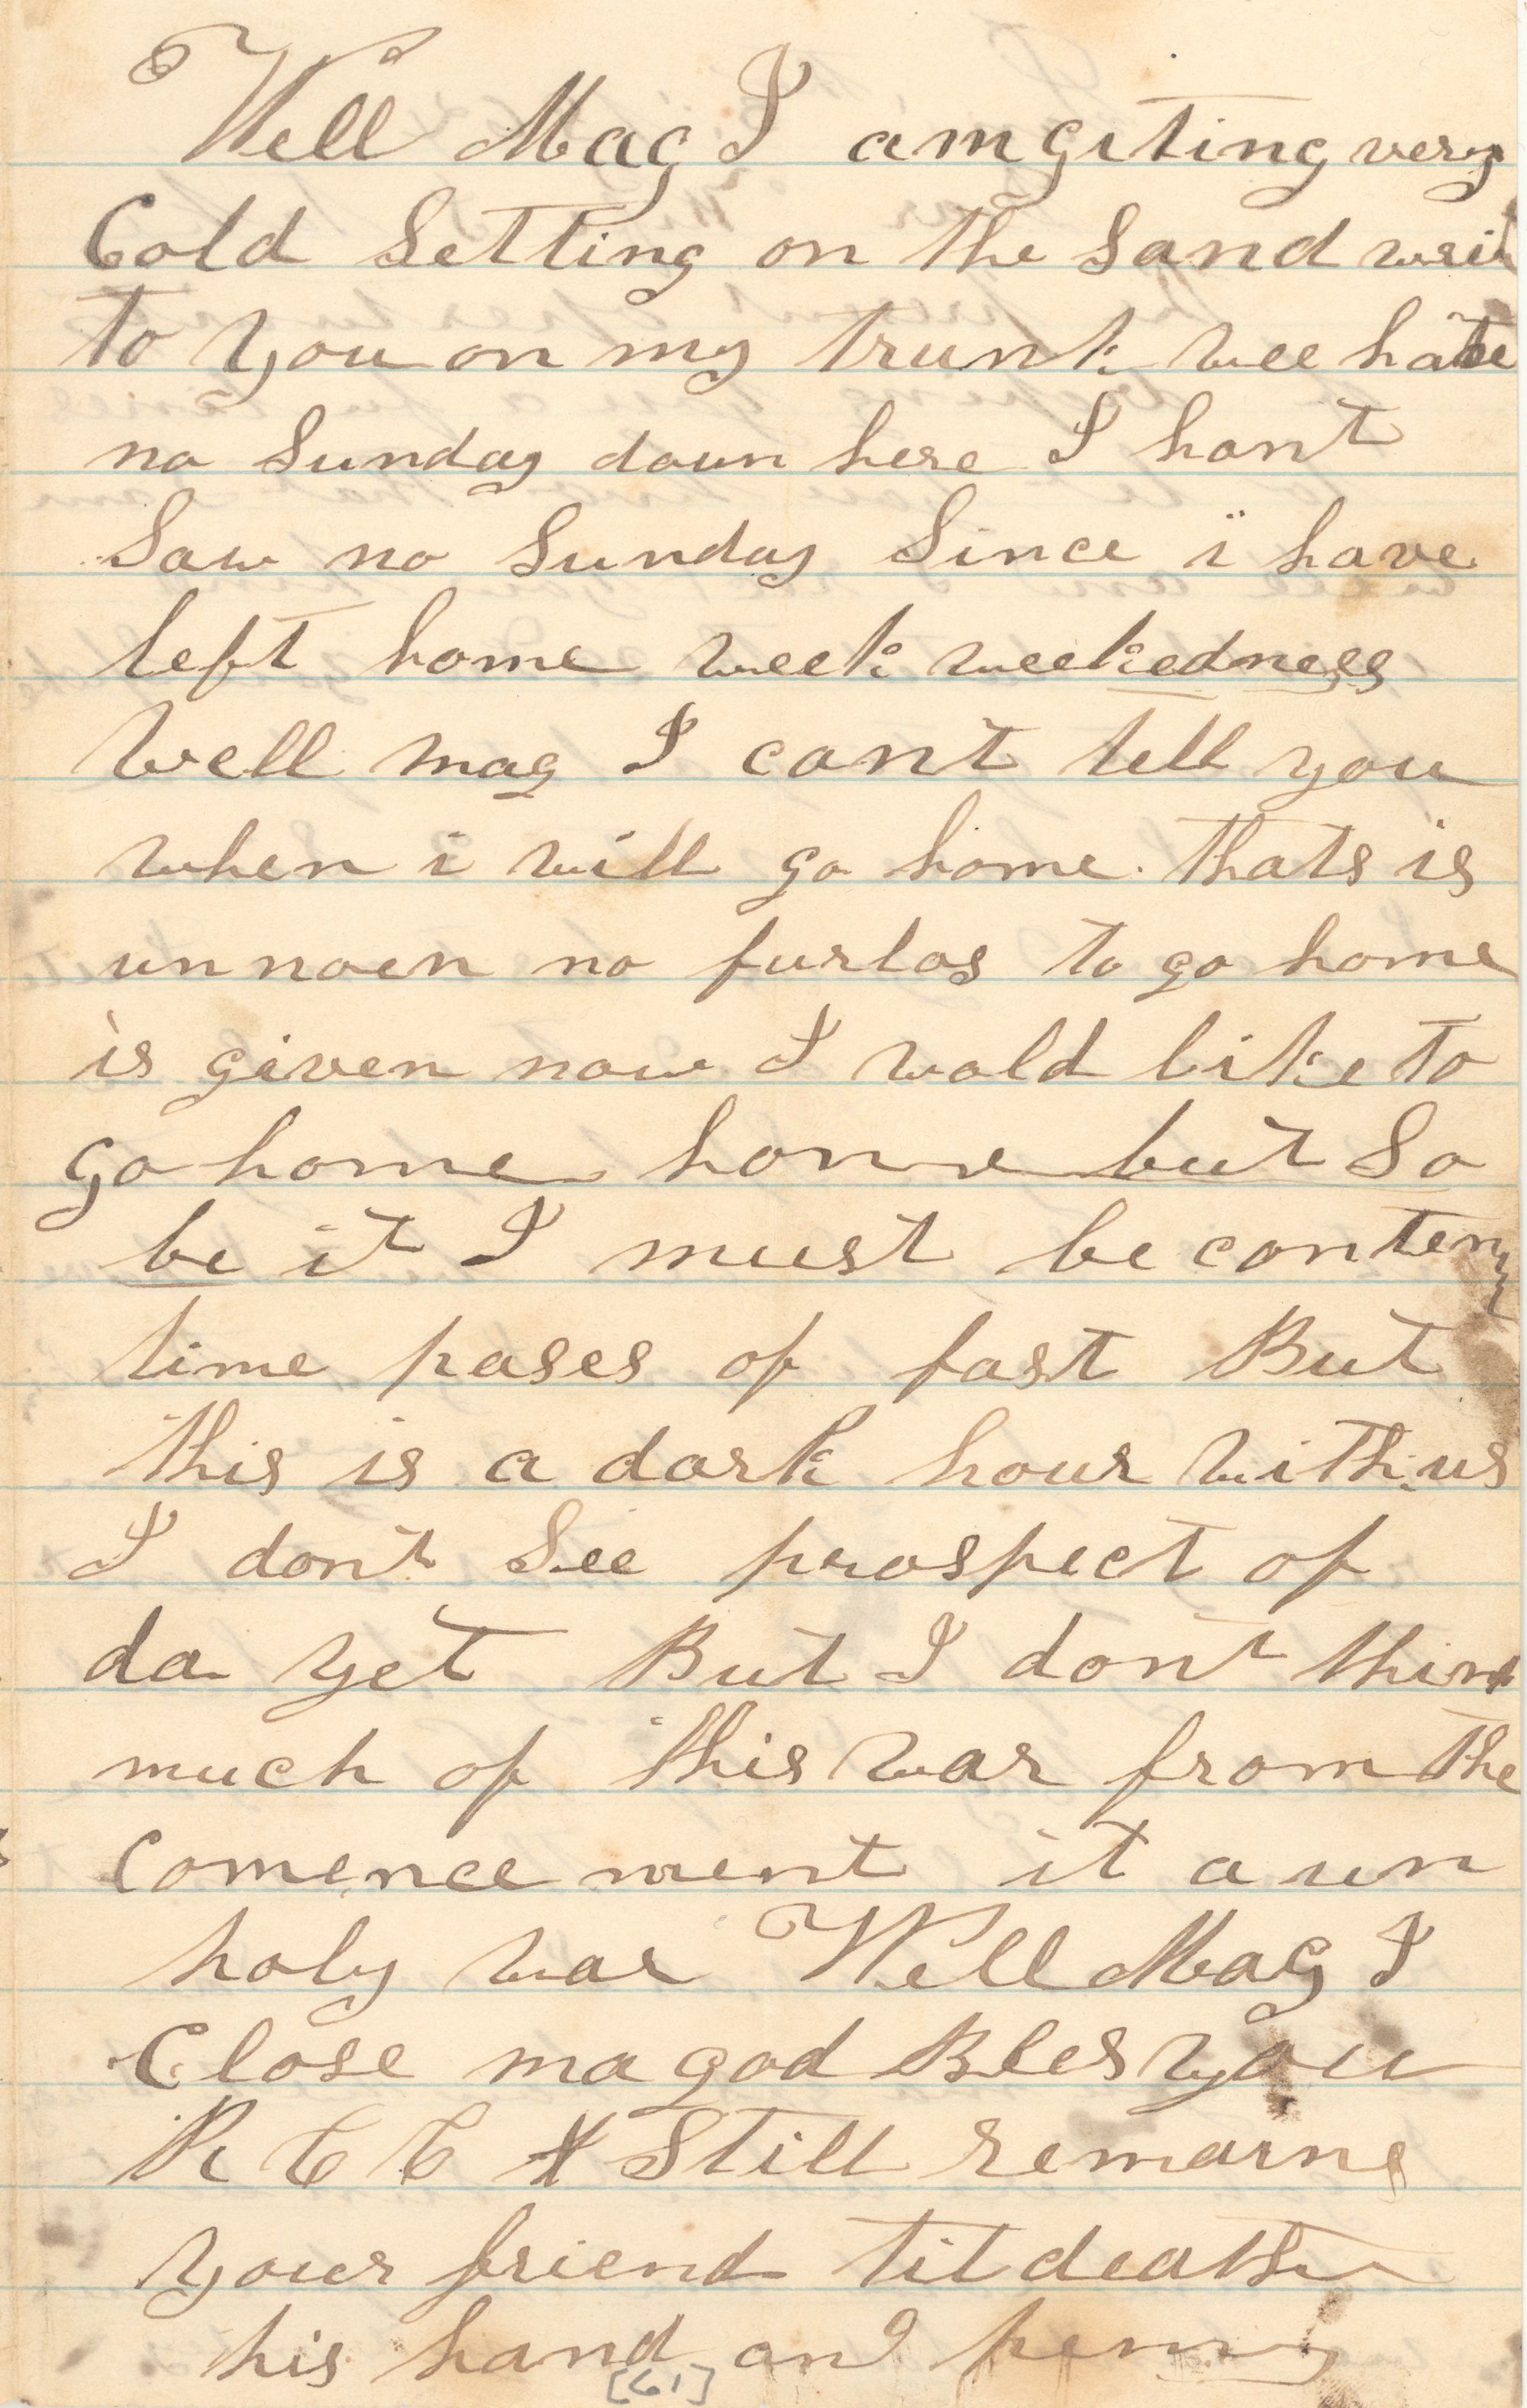 Well Mag I am giting very
Cold Setting on the Sand
to you on my trunk wee have
no Sunday doun here I hant
Saw no Sunday Since i have
left home week weekedness
Well mag I cant tell you
when i will go home. thats is
un noen no furlos to go home
is given now I wold like to
go home home but So
be it I must be content
time pases of fast But
this is a dark hour with us
I dont See prospect of
da yet But I dont think
much of this war from the
Comence ment it a un
holy war Well Mag I
Close ma god Bles you
R C C Still remains
your friend til death
his hand and penn
[61]